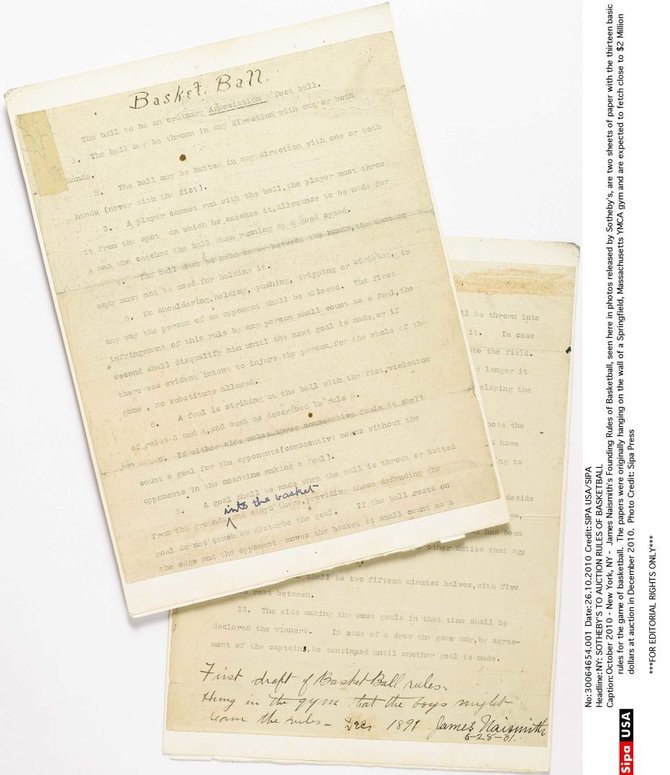 Basket Ball.
The ball to be an ordinary Association foot ball.
1. The ball may be thrown in any direction with one or both
hands.
2. The ball may be batted in any direction with one or both
hands (never with the fist).
3. A player cannot run with the ball, the player must throw
it from the spot on which he catches it, allowance to be made for
a man who catches the ball when running at a good speed.
4. The ball must be held in or between the hands, the arms or
body must not be used for holding it.
5. No shouldering, holding, pushing, tripping or striking, in
any way the person of an opponent shall be allowed. The first
infringement of this rule by any person shall count as a foul, the
second shall disqualify him until the next goal is made, or if
there was evident intent to injure the person, for the whole of the
game, no substitute allowed.
6. A foul is striking at the ball with the fist, violation
of rules 3 and 4, and such as described in rule 5.
7. If either side makes three consecutive fouls it shall
count a goal for the opponents (consecutive means without the
opponents in the meantime making a foul).
8. A goal shall be made when the ball is thrown or batted
into the basket
from the grounds and stays there, providing those defending the
goal do not touch or disturb the goal. If the ball rests on
the edge and the opponent moves the basket it shall count as a
ll be thrown into
it. In case
to the field.
t longer it
elaying the
note the
have
ng to
decide
has been
other duties that are
shall be two fifteen minutes halves, with five
rest between.
13. The side making the most goals in that time shall be
declared the winners. In case of a draw the game may, by agree-
ment of the captains, be continued until another goal is made.
First draft of Basket Ball rules.
Hung in the gym that the boys might
learn the rules - Dec 1891 James Naismith
6-28-31.
No:30064654.001 Date:26.10.2010 Credit:SIPA USA/SIPA
Headline:NY: SOTHEBY'S TO AUCTION RULES OF BASKETBALL
Caption:October 2010 - New York, NY - James Naismith's Founding Rules of Basketball, seen here in photos released by Sotheby's, are two sheets of paper with the thirteen basic
rules for the game of basketball. The papers were originally hanging on the wall of a Springfield, Massachusetts YMCA gym and are expected to fetch close to $2 Million
dollars at auction in December 2010. Photo Credit: Sipa Press
***FOR EDITORIAL RIGHTS ONLY***
Sipa USA